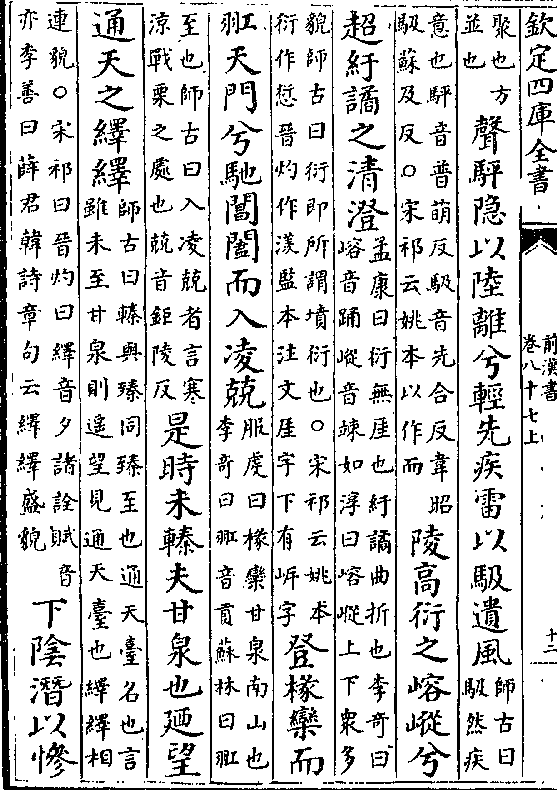 欽定四庫全書
前漢書
卷八十七上
十二
聚也方
並也
聲駍隐以陸離兮輕先疾雷以馺遺風
師古曰
馺然疾
意也駍音普萌反馺音先合反韋昭
馺蘇及反○宋祁云姚本以作而
陵高衍之嵱嵷兮
超紆譎之清澄
孟康曰衍無厓也紆譎曲折也李奇曰
嵱音踊嵷音竦如淳曰嵱嵷上下衆多
貌師古曰衍即所謂墳衍也○宋祁云姚本
衍作愆晉灼作漢監本注文厓字下有㟁字
登椽欒而
羾天門兮馳閶闔而入凌兢
服虔曰椽欒甘泉南山也
李奇曰羾音貢蘇林曰羾
至也師古曰入凌兢者言寒
涼戰栗之處也兢音鉅陵反
是時未轃夫甘泉也廼望
通天之繹繹
師古曰轃與臻同臻至也通天臺名也言
雖未至甘泉則遥望見通天臺也繹繹相
連貌○宋祁曰晉灼曰繹音夕諸詮賦音
亦李善曰薛君韓詩章句云繹繹盛貌
下陰潛以慘